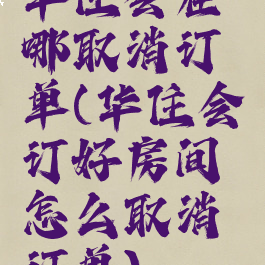 华住会在
哪取消订
单(华住会
订好房间
怎么取消
订单)